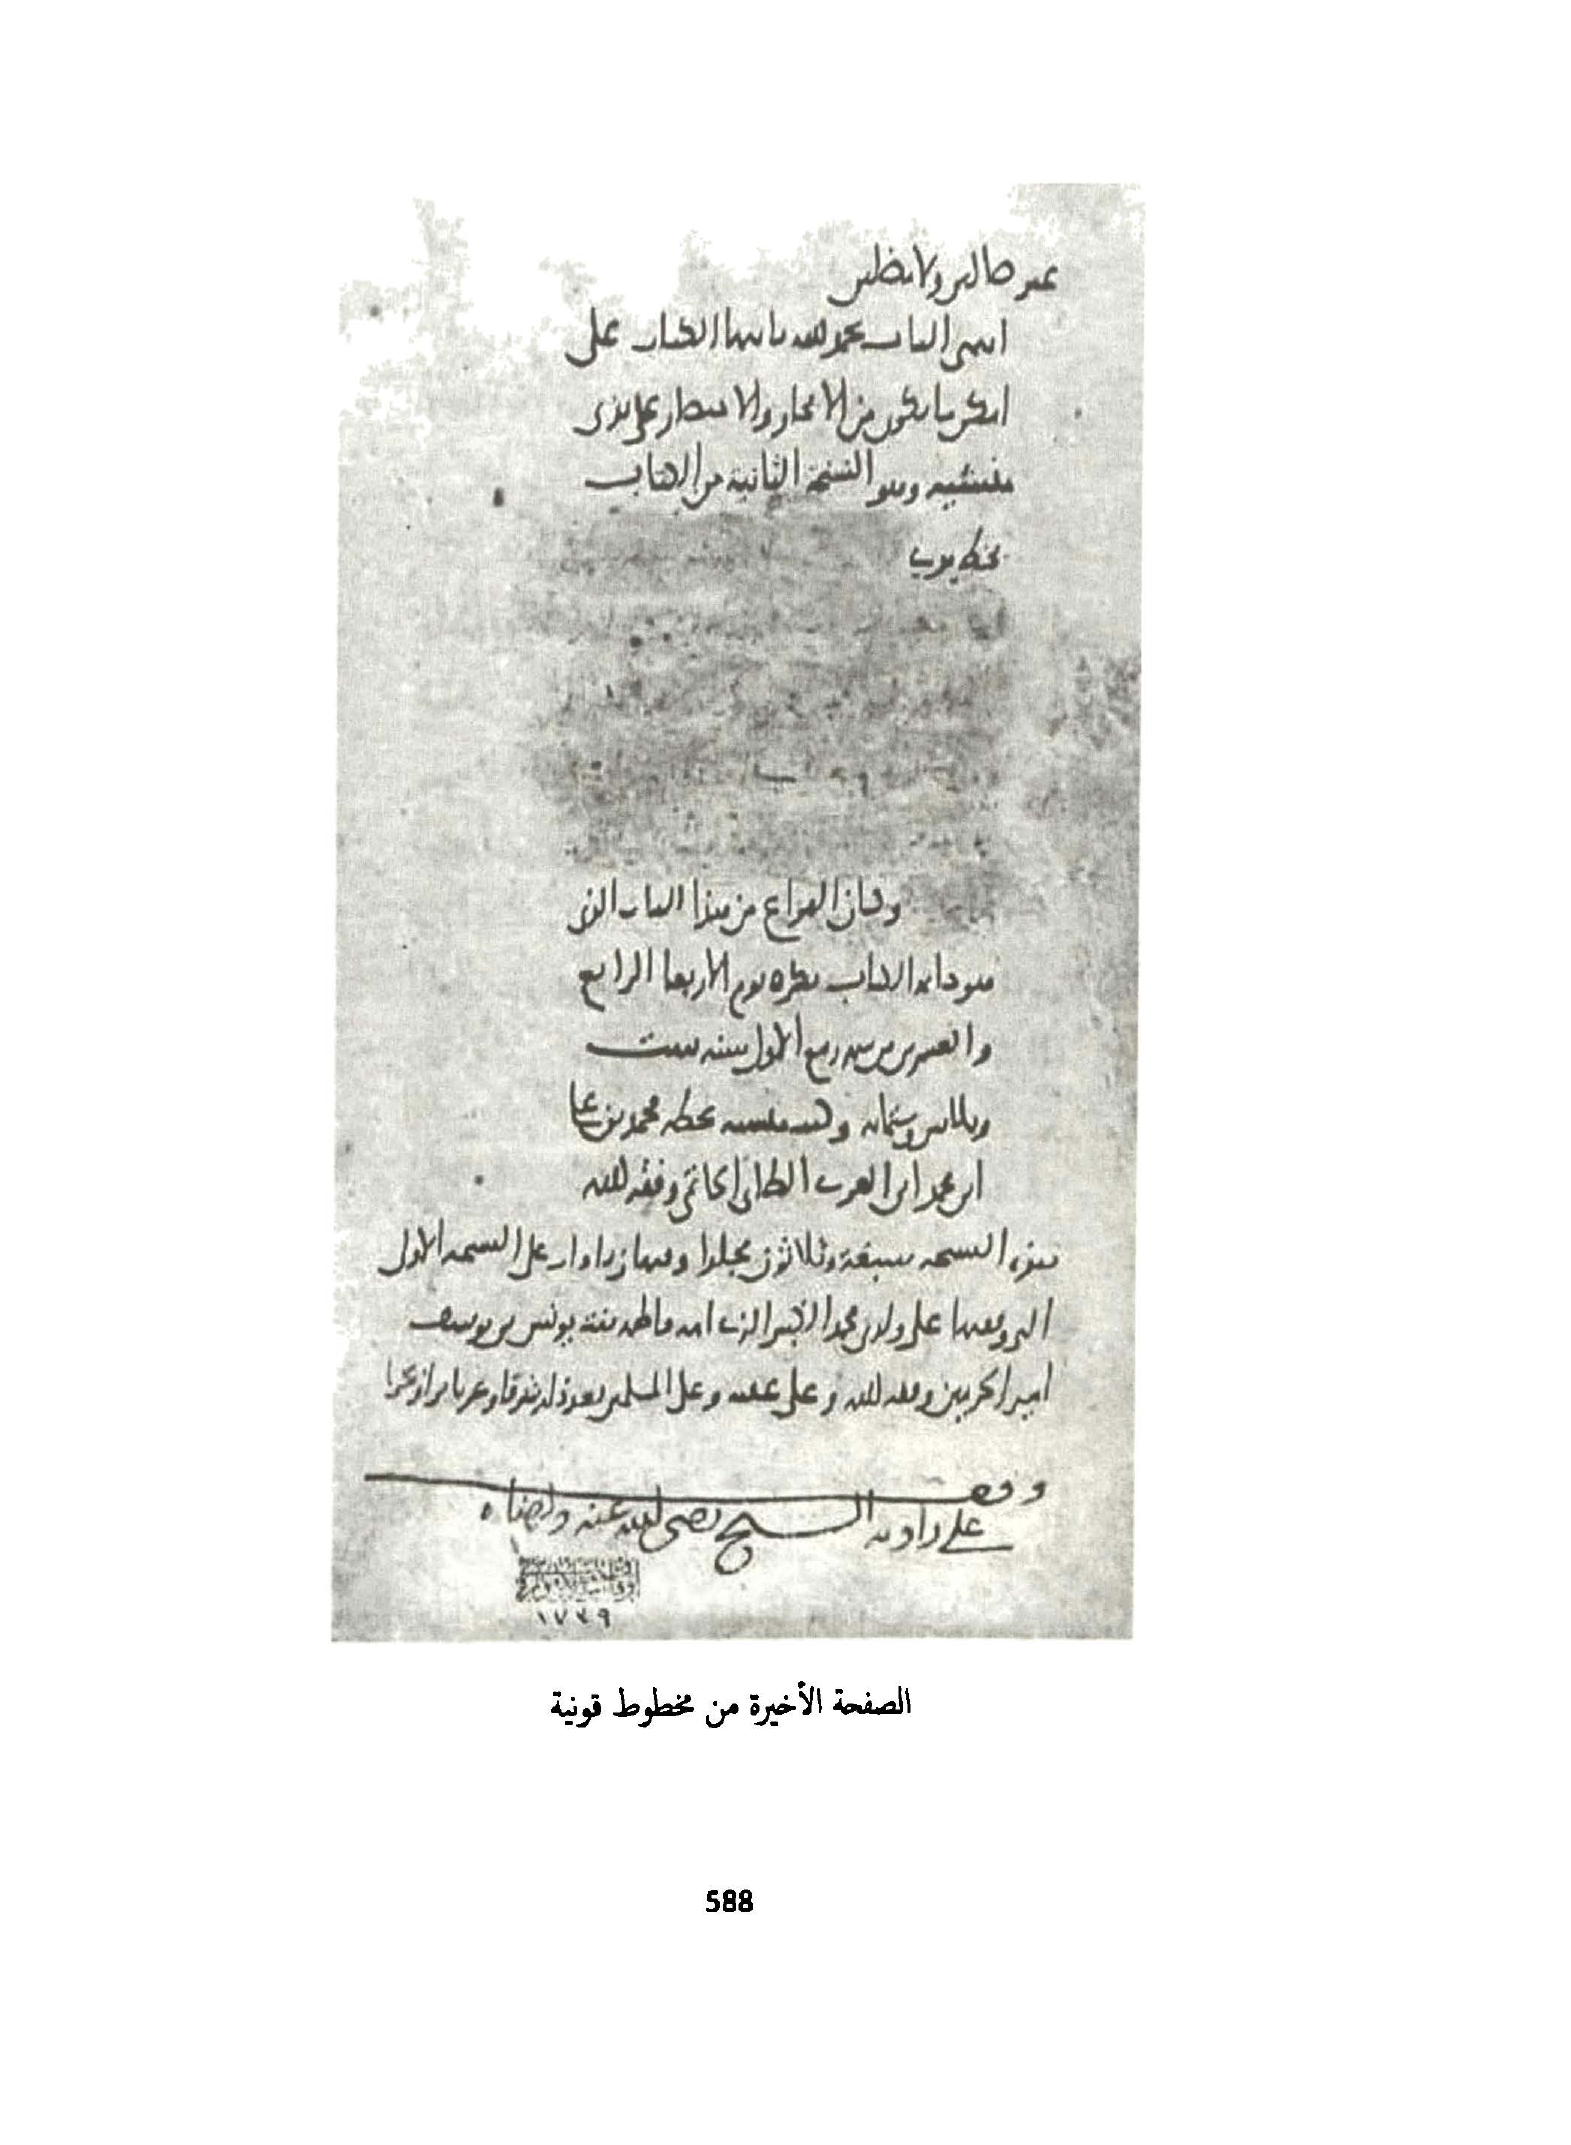 غير ظالمين ولا مظلمين
انتهى الباب بحمد الله بانتها الكتاب على
امكن ما يكون من الايجاز والاختصار على يدى
منشئيه وهو النسخة الثانية من الكتاب
بخط يدى
وكان الفراغ من هذا الباب الذى
هو خاتمه الكتاب بكره يوم الاربعا الرابع
والعشرين من شهر ربيع الاول سنه ست
وثلاثين وستمائه وكتب منشئه بخطه محمد بن على
ابن محمد ابن العربى الطائى الحاتمى وفقه الله
هذه النسخه سبعة وثلاثون مجلدا وفيها زيادات على النسخه الاولى
التى وقفتها على ولدى محمد الكبير الذى امه فاطمه بنت يونس بن يوسف
امير الحرمين وفقه الله وعلى عقبه وعلى المسلمين بعد ذلك شرقا وغربا برا وبحرا
وقف
على زاويه الشيخ رضى الله عنه وارضاه
١٧٧٩
الصفحة الأخيرة من مخطوط قونية
588